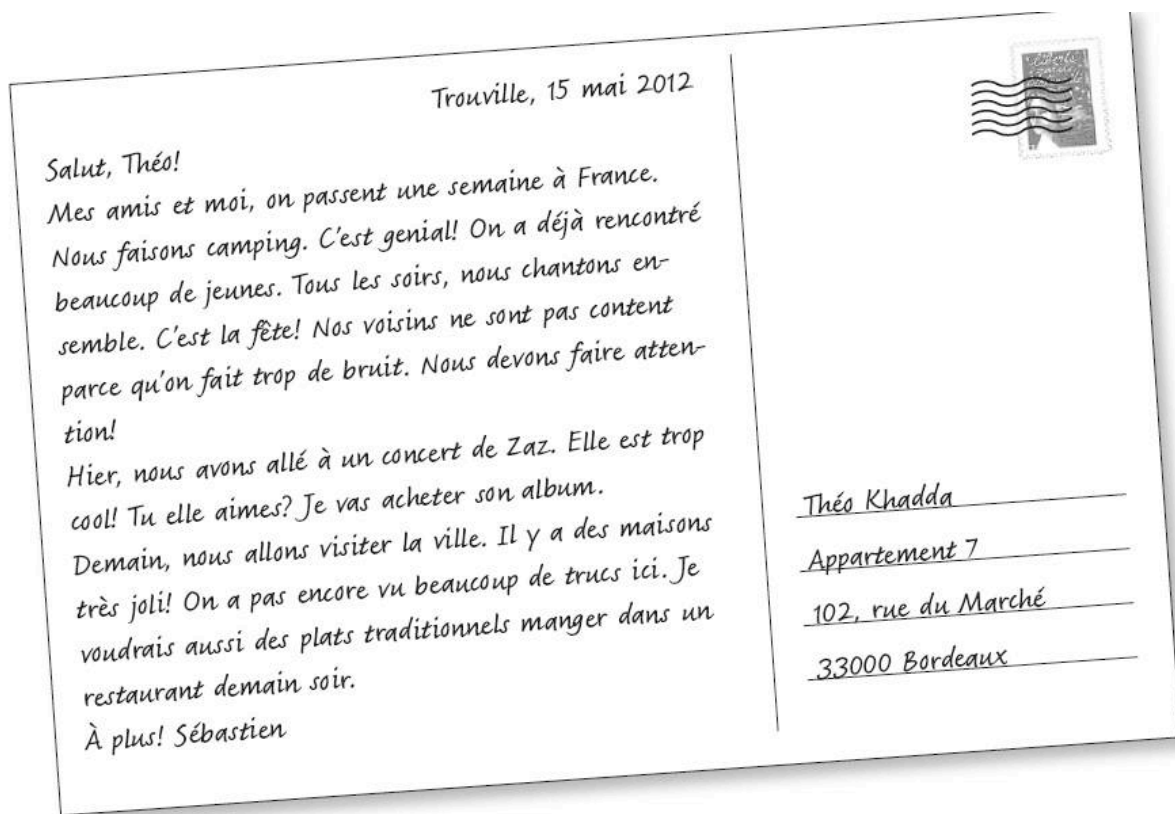 Trouville, 15 mai 2012
Salut, Théo!
Mes amis et moi, on passent une semaine à France.
Nous faisons camping. C'est genial! On a déjà rencontré
beaucoup de jeunes. Tous les soirs, nous chantons en-
semble. C'est la fête! Nos voisins ne sont pas content
parce qu'on fait trop de bruit. Nous devons faire atten-
tion!
Hier, nous avons allé à un concert de Zaz. Elle est trop
cool! Tu elle aimes? Je vas acheter son album.
Demain, nous allons visiter la ville. Il y a des maisons
très joli! On a pas encore vu beaucoup de trucs ici. Je
voudrais aussi des plats traditionnels manger dans un
restaurant demain soir.
À plus! Sébastien
Théo Khadda
Appartement 7
102, rue du Marché
33000 Bordeaux